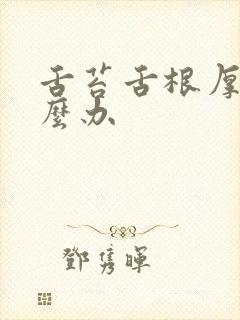 舌苔舌根厚
麼办
鄧隽暉